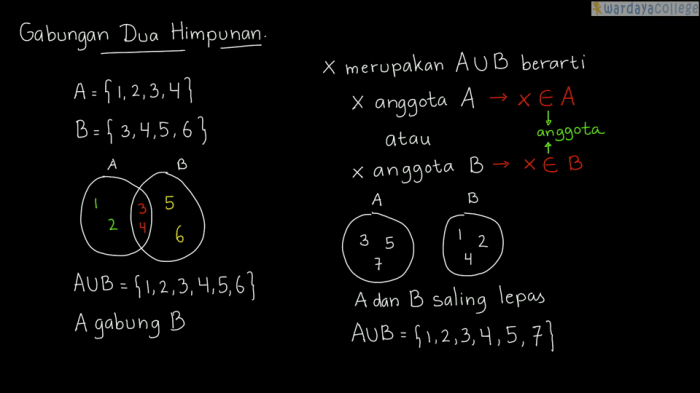 wardayacollege
Gabungan Dua Himpunan.
A = {1, 2, 3, 4}
B = {3, 4, 5, 6}
A B
1 3 5
2 4 6
A∪B = {1, 2, 3, 4, 5, 6}
A gabung B
x merupakan A∪B berarti
x anggota A → x ∈ A
↓
atau anggota
↑
x anggota B → x ∈ B
A B
3 5 1 2
7 4
A dan B saling lepas
A∪B = {1, 2, 3, 4, 5, 7}